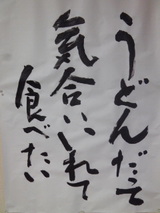 うどんだって
気合いいれて
食べたい